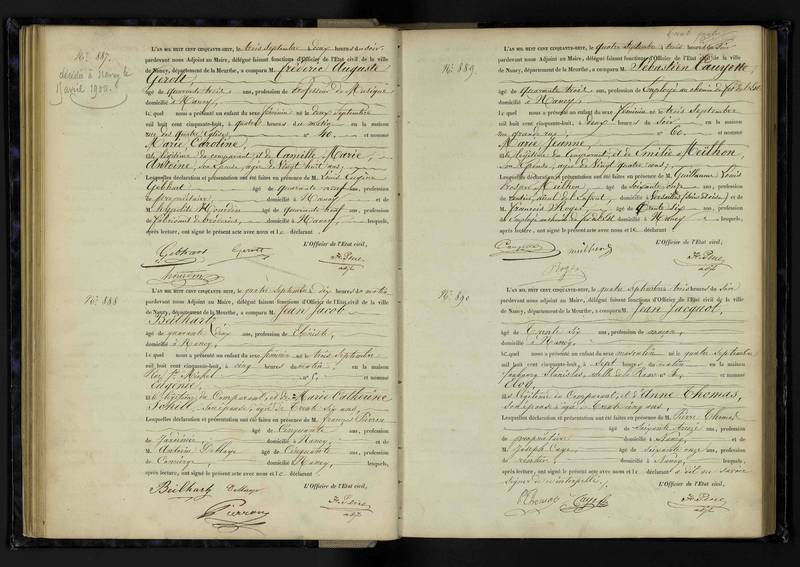 N.° 887.
décédée à Nancy le
avril 1902.
L'AN MIL HUIT CENT CINQUANTE-HUIT, le trois Septembre deux heures du soir
pardevant nous Adjoint au Maire, délégué faisant fonctions d'Officier de l'Etat civil de la ville
de Nancy, département de la Meurthe, a comparu M. Frédéric Auguste
Gerolt,
âgé de quarante trois ans, profession de Professeur de Musique
domicilié à Nancy,
lequel nous a présenté un enfant du sexe féminin né le deux Septembre
mil huit cent cinquante-huit, à quatre heures du matin en la maison
rue des Quatre Eglises, n° 40, et nommé
Marie Caroline,
fille légitime du comparant, et de Camille Marie
Antoine, son épouse, agée de Vingt huit ans;
Lesquelles déclaration et présentation ont été faites en présence de M. Louis Eugène
Gebhart âgé de quarante neuf ans, profession
de propriétaire, domicilié à Nancy et de
M. Hourdon âgé de quarante huit ans, profession
de Fabricant de broderies, domicilié à Nancy, lesquels,
après lecture, ont signé le présent acte avec nous et le déclarant
L'Officier de l'Etat civil,
Gebhart Gerolt
adjt
N.° 888
L'AN MIL HUIT CENT CINQUANTE-HUIT, le quatre Septembre à dix heures du matin
pardevant nous Adjoint au Maire, délégué faisant fonctions d'Officier de l'Etat civil de la ville
de Nancy, département de la Meurthe, a comparu M. Jean Jacob
Beilhartz
âgé de quarante deux ans, profession de Ebéniste,
domicilié à Nancy,
lequel nous a présenté un enfant du sexe féminin né le trois Septembre
mil huit cent cinquante-huit, à cinq heures du matin, en la maison
rue St Michel n° 5, et nommé
Eugénie,
fille légitime du Comparant, et de Marie Catherine
son épouse, agée de Trente Six ans,
Lesquelles déclaration et présentation ont été faites en présence de M. François Pierron
âgé de Cinquante ans, profession
de domicilié à Nancy et de
M. Antoine âgé de Cinquante ans, profession
de Concierge domicilié à Nancy, lesquels,
après lecture, ont signé le présent acte avec nous et le déclarant
L'Officier de l'Etat civil,
Beilhartz
Pierron
adjt
N.° 889
L'AN MIL HUIT CENT CINQUANTE-HUIT, le quatre Septembre à trois heures du soir
pardevant nous Adjoint au Maire, délégué faisant fonctions d'Officier de l'Etat civil de la ville
de Nancy, département de la Meurthe, a comparu M. Sébastien
âgé de quarante trois ans, profession de Employé au chemin de fer de l'Est
domicilié à Nancy,
lequel nous a présenté un enfant du sexe féminin né le trois Septembre
mil huit cent cinquante-huit, à deux heures du soir en la maison
rue grande rue, n° 60 et nommé
Marie Jeanne,
fille légitime du Comparant, et de Emilie Meilhon,
son épouse, agée de Vingt quatre ans;
Lesquelles déclaration et présentation ont été faites en présence de M. Guillaume Louis
Prosper Meilhon âgé de Soixante onze ans, profession
de rentier, domicilié à Versailles (Seine & Oise) et de
M. François Roger âgé de trente six ans, profession
de Employé au chemin de fer de l'Est domicilié à Nancy lesquels,
après lecture, ont signé le présent acte avec nous et le déclarant
L'Officier de l'Etat civil,
meilhon
Roger
adjt
N.° 890
L'AN MIL HUIT CENT CINQUANTE-HUIT, le quatre Septembre à trois heures du soir
pardevant nous Adjoint au Maire, délégué faisant fonctions d'Officier de l'Etat civil de la ville
de Nancy, département de la Meurthe, a comparu M. Jean Jacquot,
âgé de Trente Six ans, profession de maçon,
domicilié à Nancy,
lequel nous a présenté un enfant du sexe masculin né le quatre Septembre
mil huit cent cinquante-huit, à Sept heures du matin en la maison
faubourg Stanislas, et nommé
Eloy,
fils légitime du Comparant, et d'Anne Thomas,
son épouse, agée de Trente cinq ans,
Lesquelles déclaration et présentation ont été faites en présence de M. Pierre Thomas
âgé de Soixante treize ans, profession
de propriétaire domicilié à Nancy, et de
M. Joseph âgé de Soixante onze ans, profession
de rentier, domicilié à Nancy, lesquels,
après lecture, ont signé le présent acte avec nous et le déclarant a dit ne savoir
signer de ce interpellé,
L'Officier de l'Etat civil,
Thomas
adjt